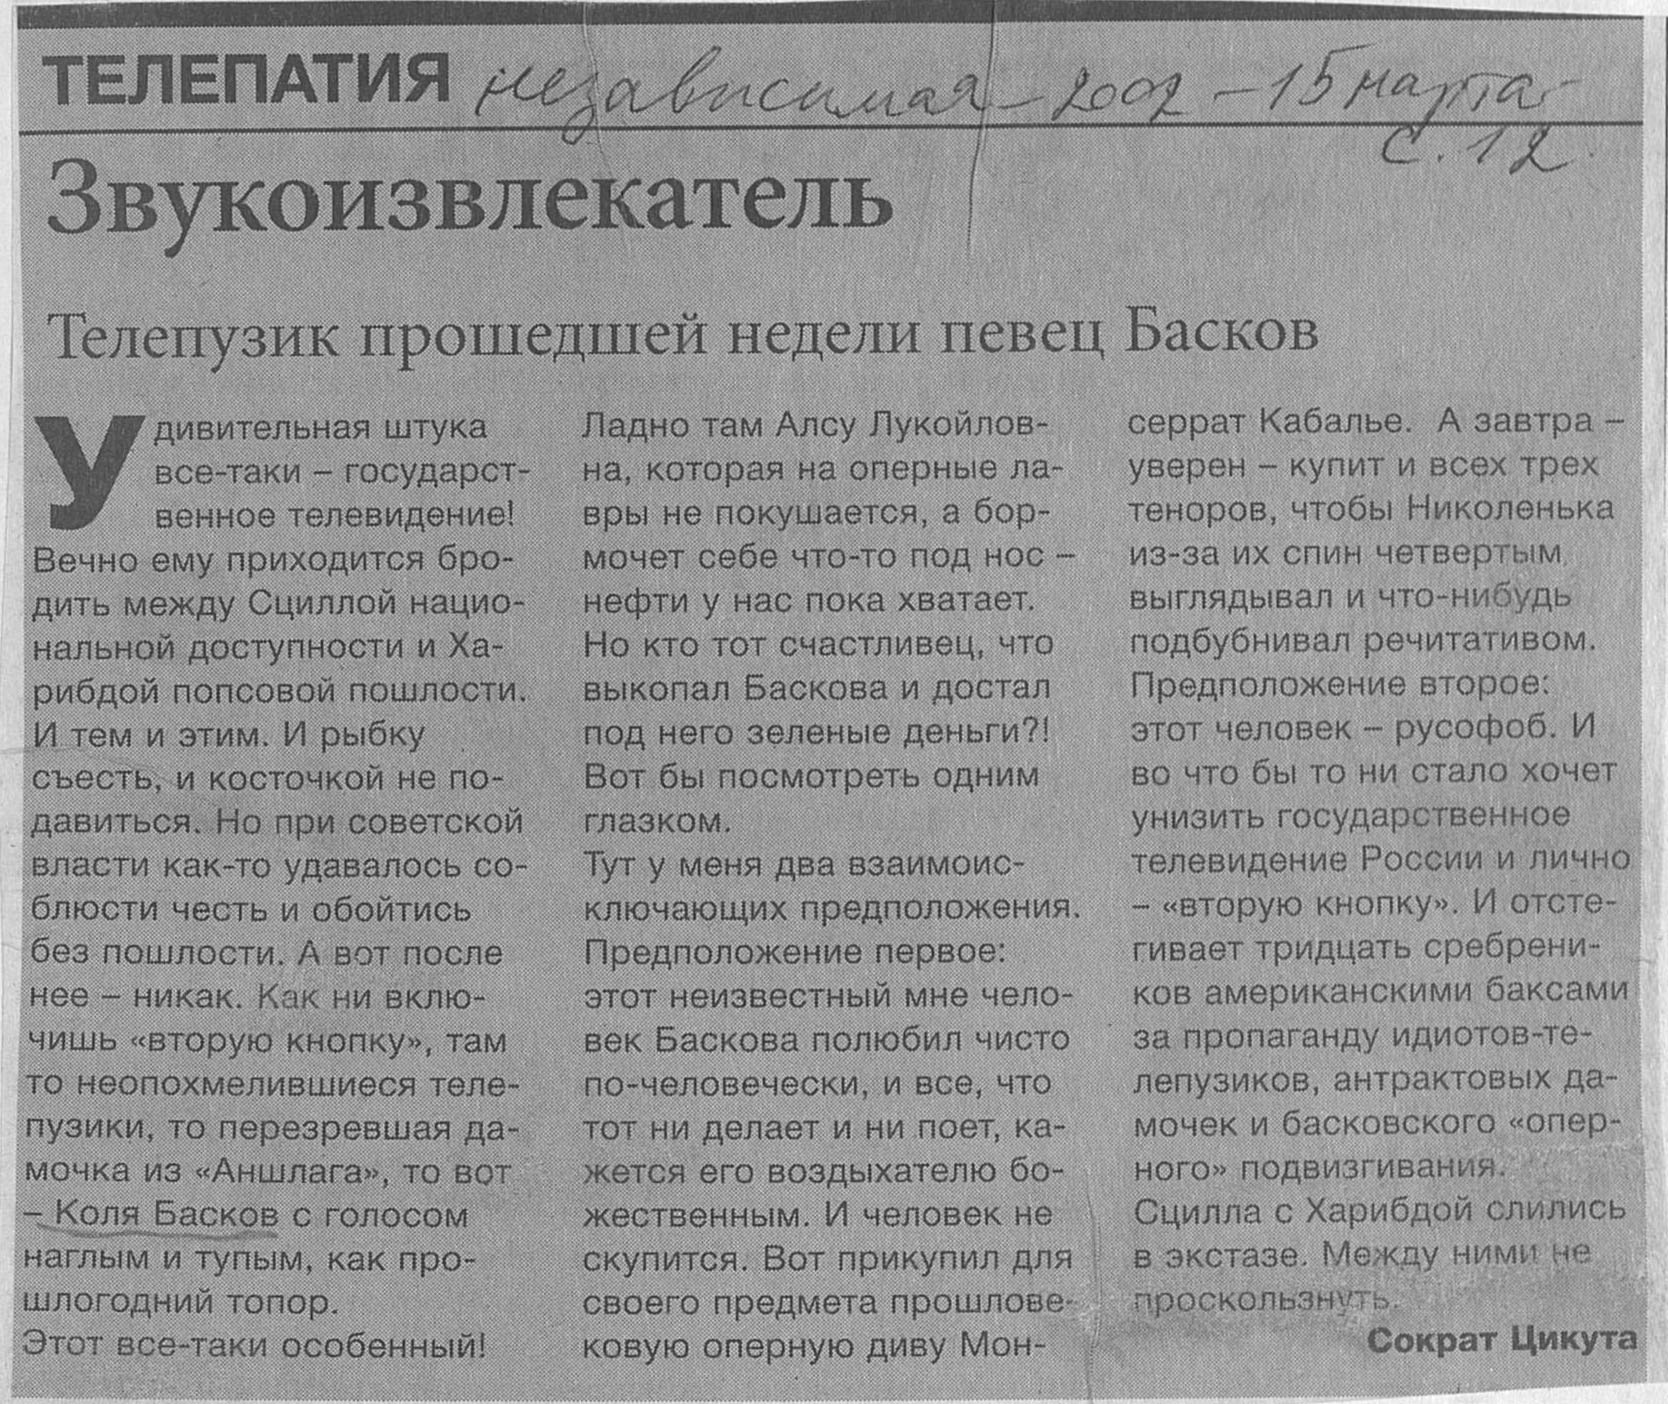 ТЕЛЕПАТИЯ независимая – 2002 – 15 марта
с. 12
Звукоизвлекатель
Телепузик прошедшей недели певец Басков
Удивительная штука
все-таки – государст-
венное телевидение!
Вечно ему приходится бро-
дить между Сциллой нацио-
нальной доступности и Ха-
рибдой попсовой пошлости.
И тем и этим. И рыбку
съесть, и косточкой не по-
давиться. Но при советской
власти как-то удавалось со-
блюсти честь и обойтись
без пошлости. А вот после
нее – никак. Как ни вклю-
чишь «вторую кнопку», там
то неопохмелившиеся теле-
пузики, то перезревшая да-
мочка из «Аншлага», то вот
– Коля Басков с голосом
наглым и тупым, как про-
шлогодний топор.
Этот все-таки особенный!
Ладно там Алсу Лукойлов-
на, которая на оперные ла-
вры не покушается, а бор-
мочет себе что-то под нос –
нефти у нас пока хватает.
Но кто тот счастливец, что
выкопал Баскова и достал
под него зеленые деньги?!
Вот бы посмотреть одним
глазком.
Тут у меня два взаимоис-
ключающих предположения.
Предположение первое:
этот неизвестный мне чело-
век Баскова полюбил чисто
по-человечески, и все, что
тот ни делает и ни поет, ка-
жется его воздыхателю бо-
жественным. И человек не
скупится. Вот прикупил для
своего предмета прошлове-
ковую оперную диву Мон-
серрат Кабалье. А завтра –
уверен – купит и всех трех
теноров, чтобы Николенька
из-за их спин четвертым
выглядывал и что-нибудь
подбубнивал речитативом.
Предположение второе:
этот человек – русофоб. И
во что бы то ни стало хочет
унизить государственное
телевидение России и лично
– «вторую кнопку». И отсте-
гивает тридцать сребрени-
ков американскими баксами
за пропаганду идиотов-те-
лепузиков, антрактовых да-
мочек и басковского «опер-
ного» подвизгивания.
Сцилла с Харибдой слились
в экстазе. Между ними не
проскользнуть.
Сократ Цикута